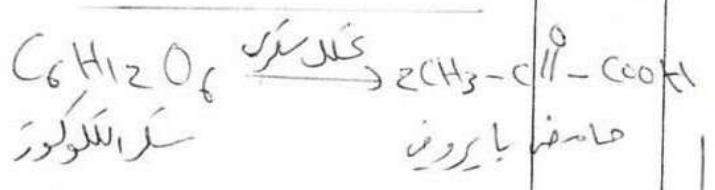 C6H12O6 تحلل سكري → 2CH3-C-COOH
O
||
سكر الكلوكوز حامض بايروفيك